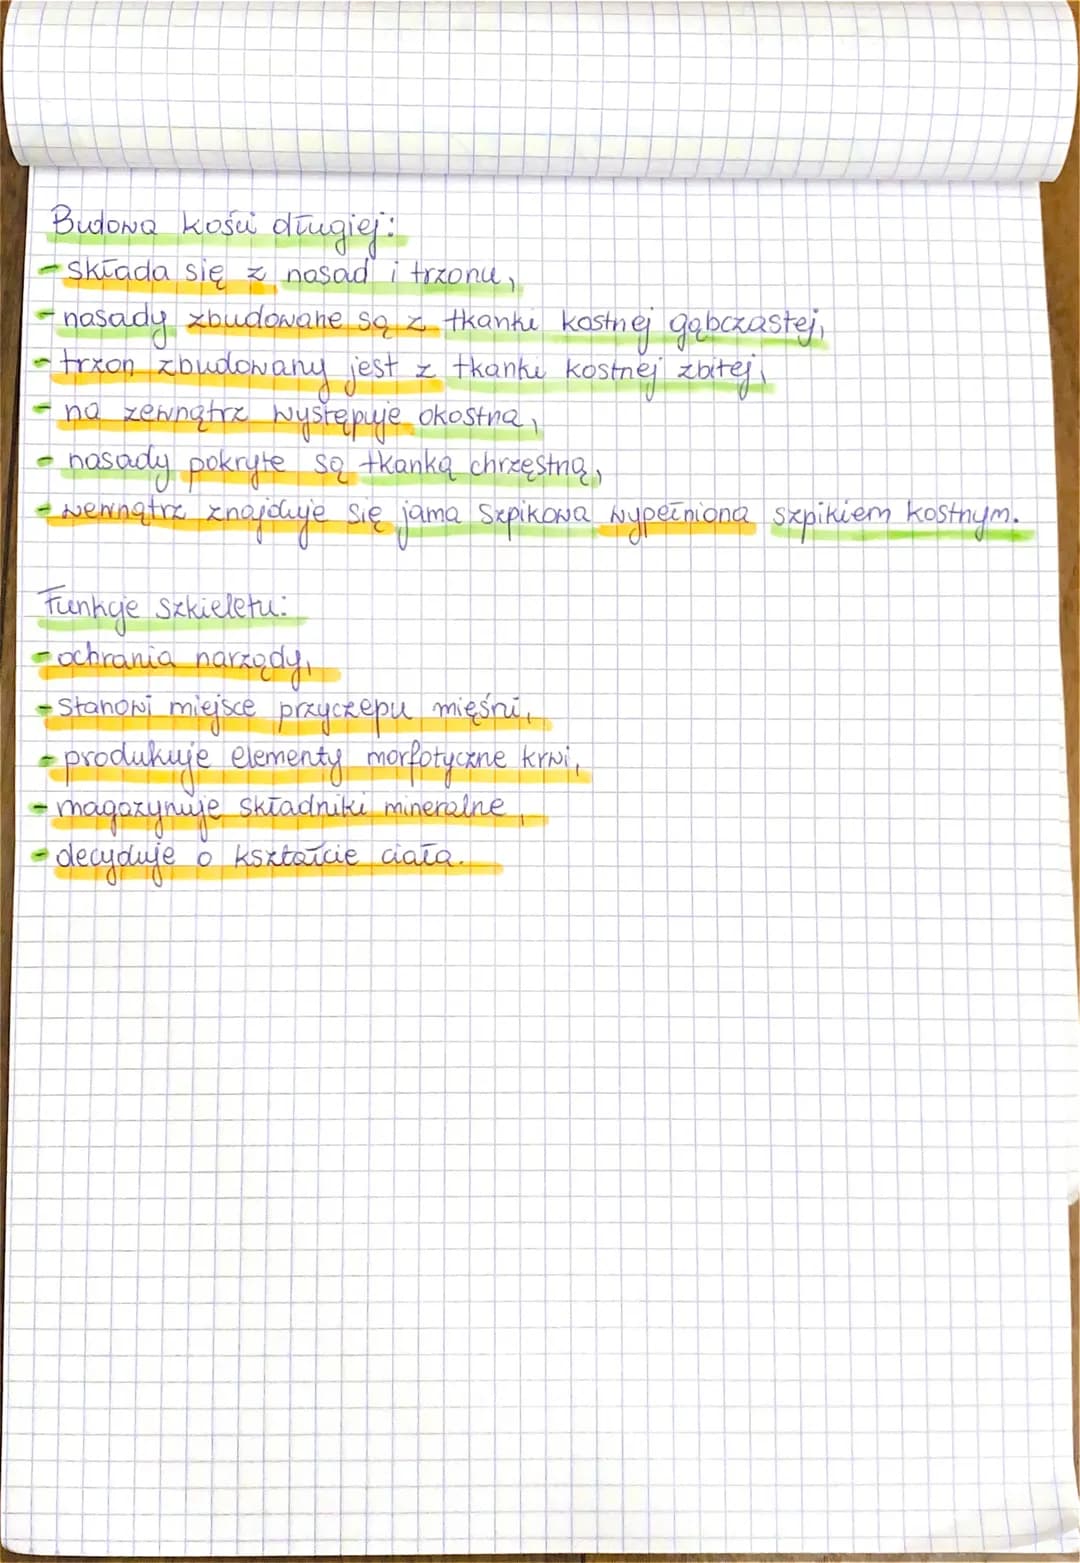 Budowa kości długiej:
- składa się z nasad i trzonu,
- nasady zbudowane są z tkanki kostnej gąbczastej,
- trzon zbudowany jest z tkanki kostnej zbitej,
- na zewnątrz występuje okostna,
- nasady pokryte są tkanką chrzęstną,
- wewnątrz znajduje się jama szpikowa wypełniona szpikiem kostnym.
Funkcje szkieletu:
- ochrania narządy,
- stanowi miejsce przyczepu mięśni,
- produkuje elementy morfotyczne krwi,
- magazynuje składniki mineralne,
- decyduje o kształcie ciała.